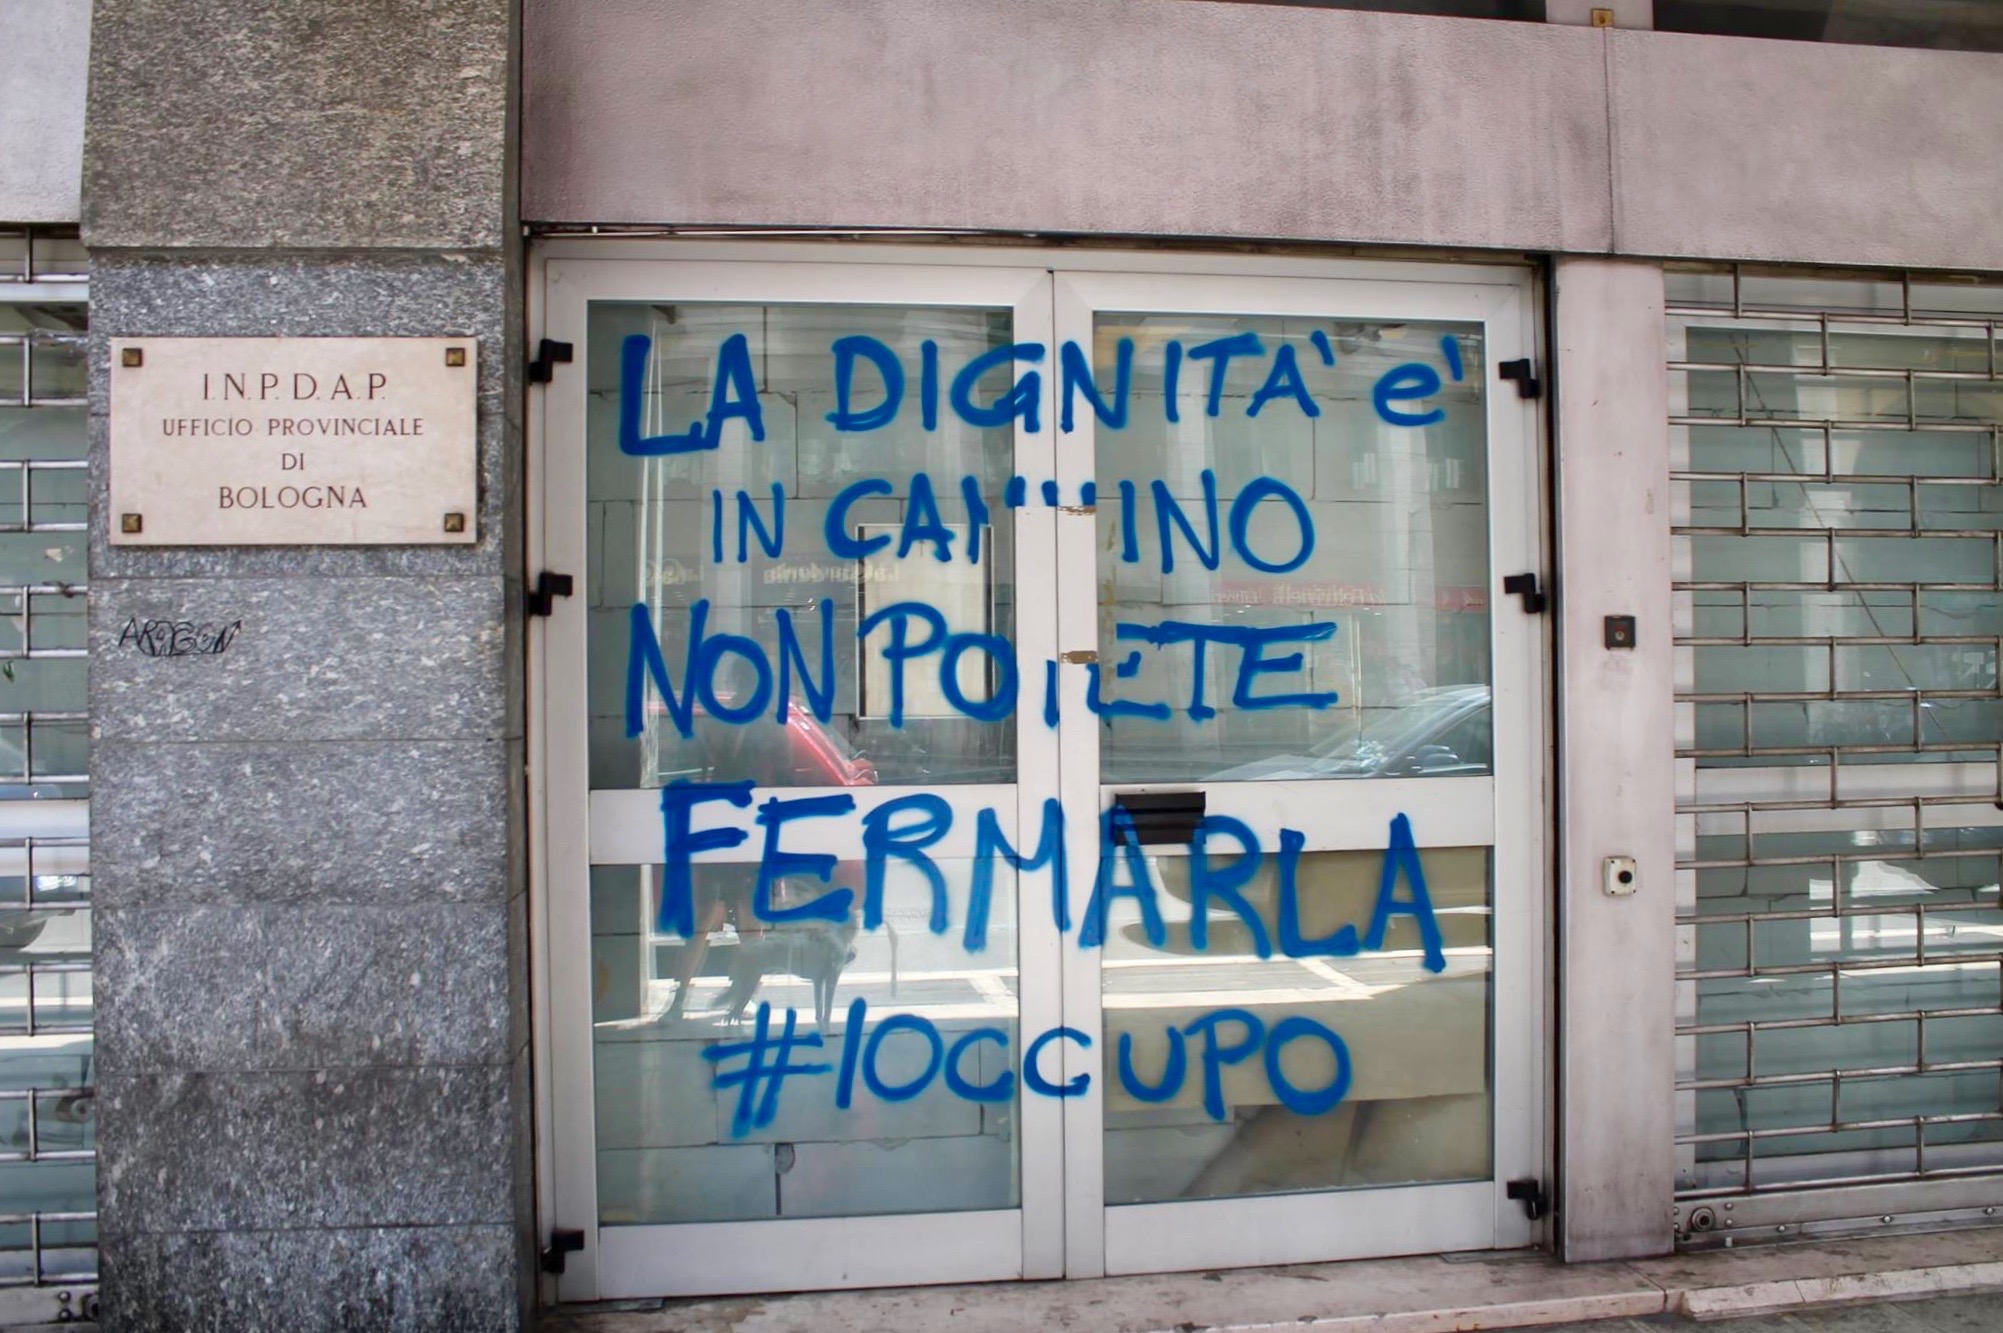 I.N.P.D.A.P.
UFFICIO PROVINCIALE
DI
BOLOGNA
LA DIGNITA' e'
IN CAMMINO
NON POTETE
FERMARLA
#IOCCUPO